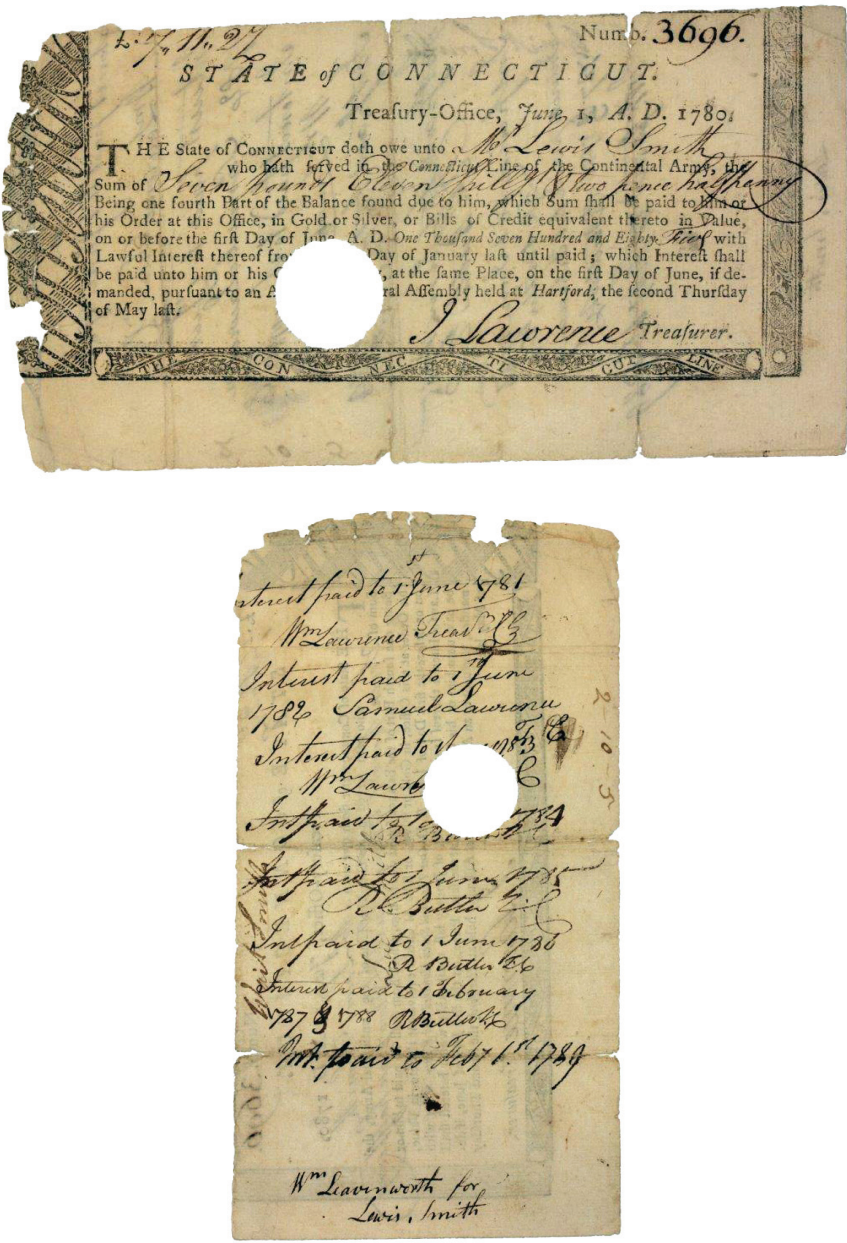 £: 7,, 11,, 2½ Numb. 3696.
STATE of CONNECTICUT.
Treasury-Office, June 1, A. D. 1780.
THE State of CONNECTICUT doth owe unto Mr Lewis Smith
who hath ſerved in the Connecticut Line of the Continental Army, the
Sum of Seven pounds Eleven Shillgs & two pence halfpenny
Being one fourth Part of the Balance found due to him, which Sum ſhall be paid to him or
his Order at this Office, in Gold or Silver, or Bills of Credit equivalent thereto in Value,
on or before the firſt Day of June, A. D. One Thouſand Seven Hundred and Eighty-Five with
Lawful Intereſt thereof fro Day of January laſt until paid; which Intereſt ſhall
be paid unto him or his at the ſame Place, on the firſt Day of June, if de-
manded, purſuant to an A ral Aſſembly held at Hartford, the ſecond Thurſday
of May laſt.
J Lawrence Treaſurer.
THE CON NEC TI CUT LINE
2 10 5
Interest paid to 1st June 1781
Wm Lawrence
Interest paid to 1st June
1782 Samuel Lawrence
Interest paid to 1 1783
Wm Lawre
Int paid to 1784
R Butler
Int paid to 1 June 1785
R Butler
Int paid to 1 June 1786
R Butler
Interest paid to 1 February
1787 & 1788 R Butler
Int. paid to Feby 1st 1789
2-10-5
Lewis Smith
3696
Wm Leavenworth for
Lewis Smith